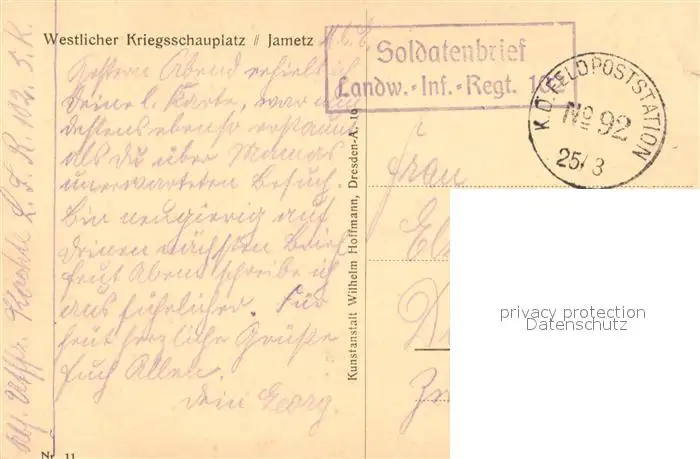 Westlicher Kriegsschauplatz // Jametz
Soldatenbrief
Landw.-Inf.-Regt. 10
K.D. FELDPOSTSTATION
No 92
25/3
Gestern Abend erhielt ich
deine l. Karte, war
ebenso erstaunt
als du über Mamas
unerwarteten Besuch.
Bin neugierig auf
deinen nächsten Brief
heut Abend schreibe ich
ausführlicher. Für
heut herzliche Grüße
Euch Allen.
Dein Georg.
L. I. R. 102. 5. K.
Kunstanstalt Wilhelm Hoffmann, Dresden-A.-16
Frau
privacy protection
Datenschutz
Nr. 11